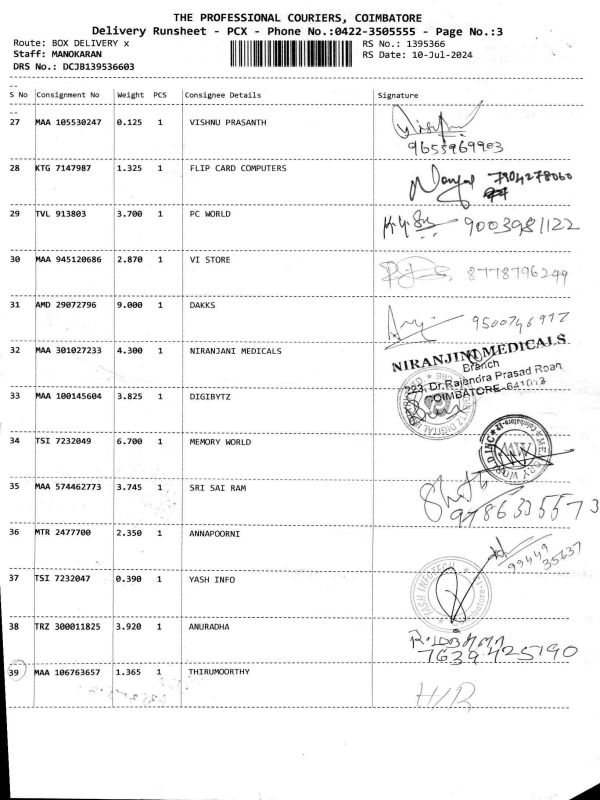 THE PROFESSIONAL COURIERS, COIMBATORE
Delivery Runsheet - PCX - Phone No.:0422-3505555 - Page No.:3
Route: BOX DELIVERY x RS No.: 1395366
Staff: MANOKARAN RS Date: 10-Jul-2024
DRS No.: DCJB139536603
S No Consignment No Weight PCS Consignee Details Signature
27 MAA 105530247 0.125 1 VISHNU PRASANTH
9655969903
28 KTG 7147987 1.325 1 FLIP CARD COMPUTERS 7904278060
29 TVL 913803 3.700 1 PC WORLD 9003981122
30 MAA 945120686 2.870 1 VI STORE 8778796299
31 AMD 29072796 9.000 1 DAKKS
32 MAA 301027233 4.300 1 NIRANJANI MEDICALS NIRANJINI MEDICALS
Branch
223, Dr.Rajendra Prasad Roan
COIMBATORE-641012
33 MAA 100145604 3.825 1 DIGIBYTZ
34 TSI 7232049 6.700 1 MEMORY WORLD
35 MAA 574462773 3.745 1 SRI SAI RAM
9786335573
36 MTR 2477700 2.350 1 ANNAPOORNI
99449
35637
37 TSI 7232047 0.390 1 YASH INFO YASH INFOTECH
38 TRZ 300011825 3.920 1 ANURADHA
7639425190
39 MAA 106763657 1.365 1 THIRUMOORTHY